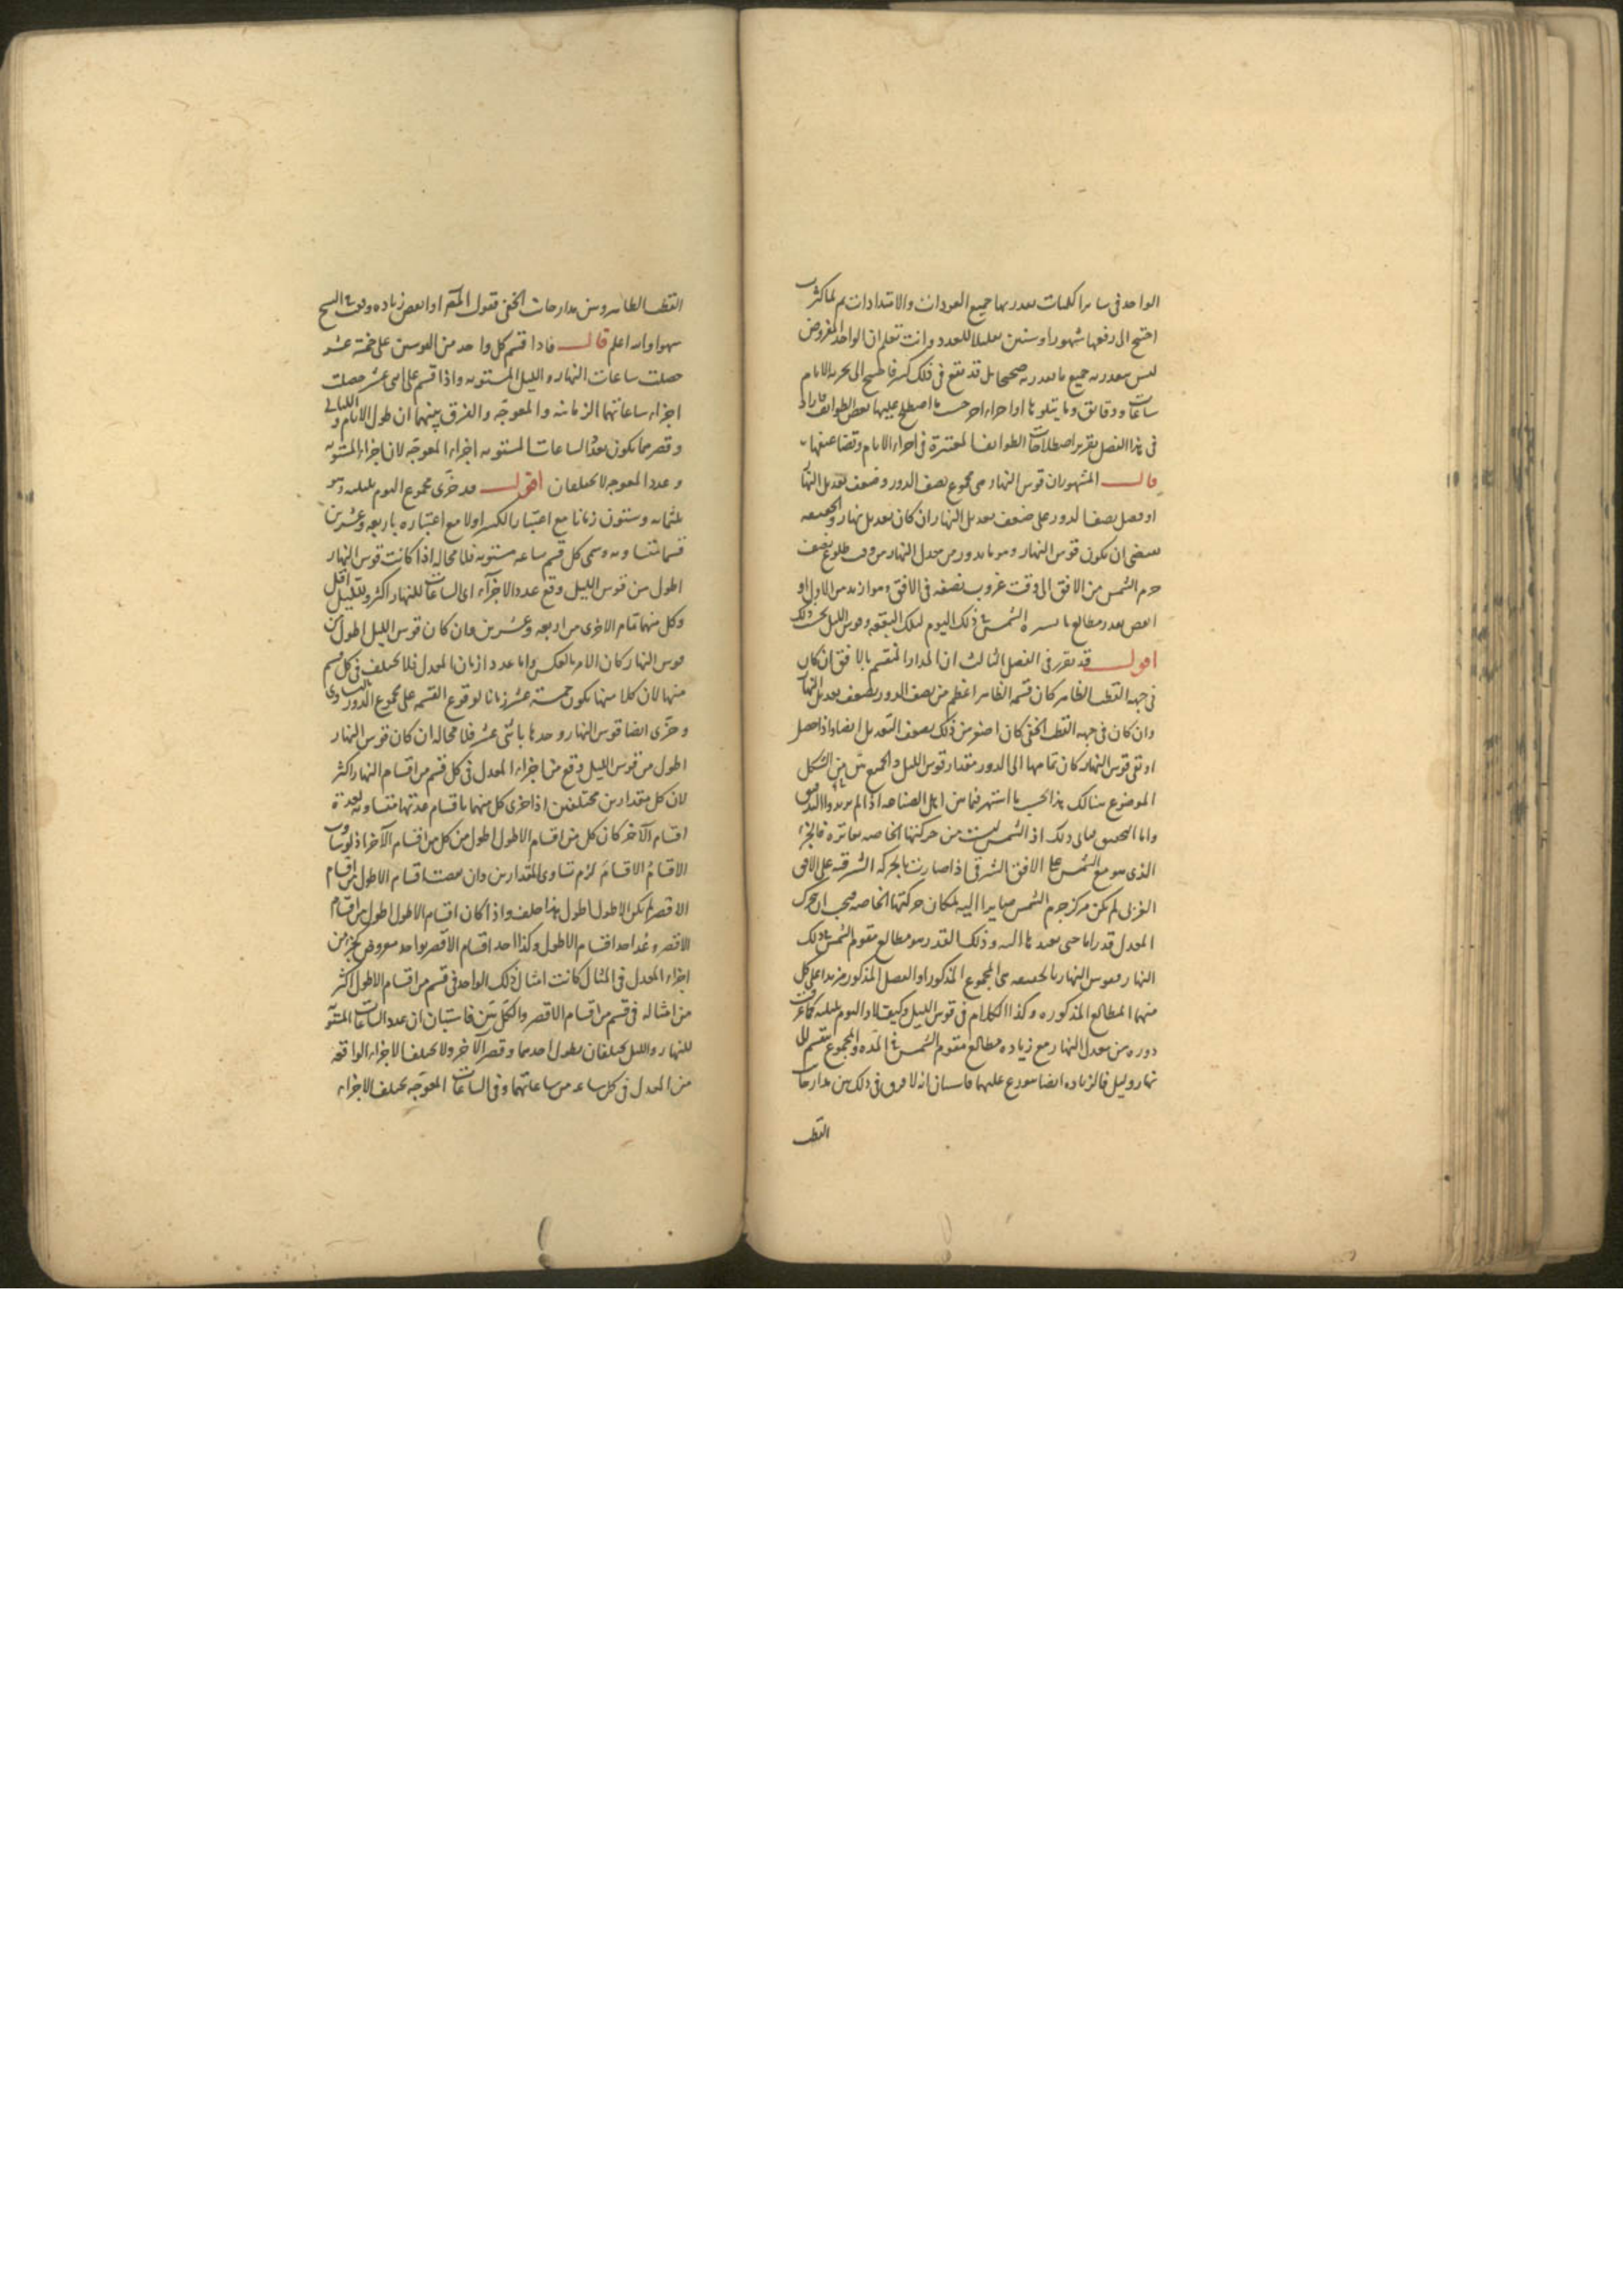 الواحد في سائر الكميات يعدر بها جميع العودات والامتدادات ثم لما كثرت
احتيج الى رفعها شهورا وسنين تقليلا للعدد وانت تعلم ان الواحد المفروض
ليس يقدر به جميع ما يقدر به صحيحا بل قد يقع في ذلك كسر فاحتيج الى تجزية الايام
ساعات ودقائق وما يتلوها او اجزاء اخر حسب ما اصطلح عليها بعض الطوائف فاراد
في هذا الفصل تقرير اصطلاحات الطوائف المعتبرة في اجزاء الايام وتضاعيفها
قال المشهور ان قوس النهار هي مجموع نصف الدور وضعف تعديل النهار
او فضل نصف الدور على ضعف تعديل النهار ان كان تعديل نهار والحقيقة
تقتضي ان يكون قوس النهار وهو ما يدور من معدل النهار من وقت طلوع نصف
جرم الشمس من الافق الى وقت غروب نصفه في الافق هو ازيد من الاول او
انقص بقدر مطالع ما تسيره الشمس في ذلك اليوم لتلك البقعة وقوس الليل بحسب ذلك
اقول قد تقرر في الفصل الثالث ان المدار المنقسم بالافق ان كان
في جهة القطب الظاهر كان قسمه الظاهر اعظم من نصف الدور بضعف تعديل النهار
وان كان في جهة القطب الخفي كان اصغر من ذلك بضعف التعديل ايضا واذا حصل
او نقي قوس النهار كان تمامها الى الدور مقدار قوس الليل والجميع بين من الشكل
الموضوع هنالك هذا بحسب ما اشتهر فيما بين اهل الصناعة اذا لم يريدوا التدقيق
واما التحقيق فيابى ذلك اذ الشمس ليست من حركتها الخاصة بفاترة فالجزء
الذي هو مع الشمس على الافق الشرقي اذا صارت بالحركة الشرقية على الافق
الغربي لم يكن مركز جرم الشمس صايرا اليه لمكان حركتها الخاصة فيجب ان يتحرك
المعدل قدرا ما حتى يعيدها اليه وذلك القدر هو مطالع مقوم الشمس في ذلك
النهار فقوس النهار بالحقيقة هي المجموع المذكور او الفضل المذكور مزيدا على كل
منهما المطالع المذكورة وكذا الكلام في قوس الليل وكيف لا واليوم بليلته كما عرفت
دورة من معدل النهار مع زيادة مطالع مقوم الشمس في المدة والمجموع منقسم الى
نهار وليل فالزيادة ايضا موزع عليهما فاستبان انه لا فرق في ذلك بين مدارجات
القطب
القطب الظاهر وبين مدارجات الخفي فقول المقر او انقص زيادة وقعت في النسخ
سهوا والله اعلم قال فاذا قسم كل واحد من القوسين على خمسة عشر
حصلت ساعات النهار والليل المستوية واذا قسم على اثني عشر حصلت
اجزاء ساعاتهما الزمانية والمعوجة والفرق بينهما ان طول الايام والليالي
وقصرهما يكون بعدد الساعات المستوية اجزاء المعوجة لان اجزاء المستوية
وعدد المعوجة لا يختلفان اقول قد جزى مجموع اليوم بليلته وهو
ثلثمائة وستون زمانا مع اعتبار الكسر اولا مع اعتباره باربعة وعشرين
قسما متساوية وسمي كل قسم ساعة مستوية فلا محالة اذا كانت قوس النهار
اطول من قوس الليل وقع عدد الاجزاء اى الساعات للنهار اكثر ولليل اقل
وكل منهما تمام الاخرى من اربعة وعشرين وان كان قوس الليل اطول من
قوس النهار كان الامر بالعكس واما عدد ازمان المعدل فلا يختلف في كل قسم
منها لان كلا منها يكون خمسة عشر زمانا لوقوع القسمة على مجموع الدور بالتساوي
وجزى ايضا قوس النهار وحدها باثنى عشر فلا محالة ان كان قوس النهار
اطول من قوس الليل وقع من اجزاء المعدل في كل قسم من اقسام النهار اكثر
لان كل مقدارين مختلفين اذا جزى كل منهما باقسام عدتها متساوية لعدة
اقسام الآخر كان كل من اقسام الاطول اطول من كل من اقسام الآخر اذ لو تساوت
الاقسامُ الاقسامَ لزم تساوى المقدارين وان نقصت اقسام الاطول من اقسام
الاقصر لم يكن الاطول اطول هذا خلف واذا كان اقسام الاطول اطول من اقسام
الاقصر وعُد احد اقسام الاطول وكذا احد اقسام الاقصر بواحد مفروض كجزء من
اجزاء المعدل في المثال كانت امثال ذلك الواحد في قسم من اقسام الاطول اكثر
من امثاله في قسم من اقسام الاقصر والكل بين فاستبان ان عدد الساعات المستوية
للنهار والليل يختلفان بطول احدهما وقصر الآخر ولا يختلف الاجزاء الواقعة
من المعدل في كل ساعة من ساعاتهما وفي الساعات المعوجة يختلف الاجزاء